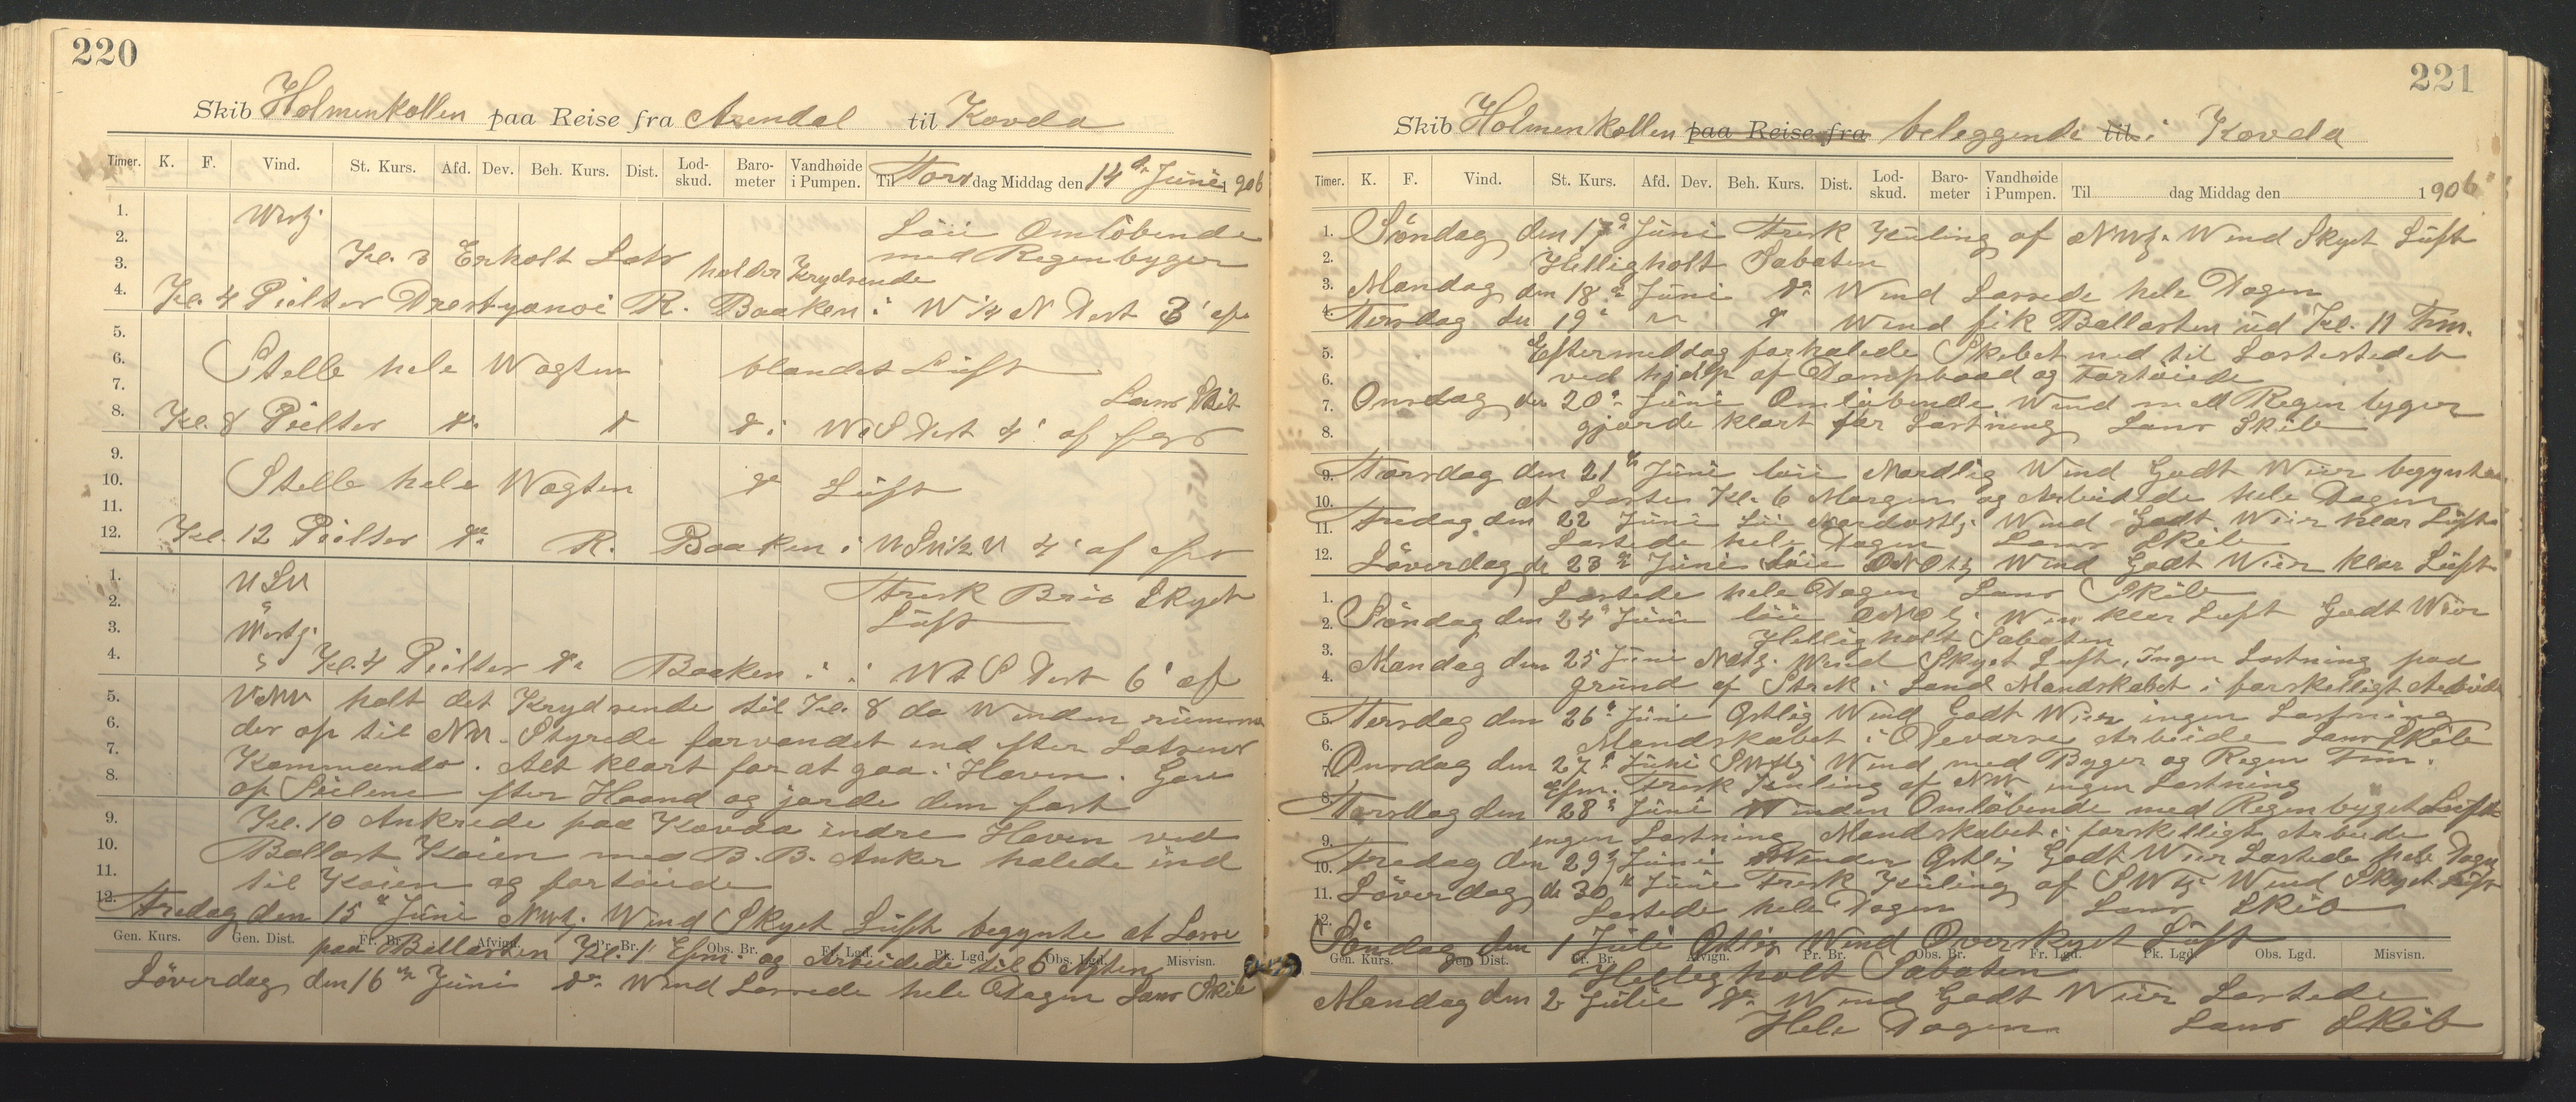 220
Skib Holmenkollen paa Reise fra Arendal til Kovda
Timer. K. F. Vind. St. Kurs. Afd. Dev. Beh. Kurs. Dist. Lod-skud. Baro-meter Vandhøide i Pumpen. Til Torsdag Middag den 14de Juni 1906
1. Westj.
2. Löii Omlöbende
3. Kl. 3 Erholt Lots holder Krydsende med Regenbyger
4. Kl. 4 Pielter R. Baaken i W 1/4 N Dest 3' af
5.
6. Stelle hele Wagten blandet Lüft
7. Lans Skib
8. Kl. 8 Pielter do do do i WtS Dest 4' af
9.
10. Stelle hele Wagten do Lüft
11.
12. Kl. 12 Pielter do R. Baaken i 4' af
1. Fresk Bris Skyet
2. Lüft
3. Westj.
4. " Kl. 4 Pielter do Baaken " " WtS Dest 6' af
5. holt det Krydsende til Kl. 8 da Winden rümme
6. der op til NW. Styrede farvandet ind efter Lotsens
7. Kommando. Alt klart for at gaa i Haven. Gav
8. op Seilene efter Haand og jorde dem fast
9. Kl. 10 Ankrede paa Kovda indre Haven ved
10. Ballast Kaien med B.B. Anker halede ind
11. til Kaien og fortöiede
12. Fredag den 15de Juni NWtj. Wind Skyet Lüft begynte at Losse
Gen. Kurs. Gen. Dist. Fr. Br. Afvign. Pr. Br. Obs. Br. Fr. Lgd. Pk. Lgd. Obs. Lgd. Misvisn.
paa Ballasten Kl. 1 Efm. og Arbeidede til 6 Aften
Löverdag den 16de Juni do Wind Lossede hele Dagen Lans Skib
221
Skib Holmenkollen paa Reise fra beleggende til i Kovda
Timer. K. F. Vind. St. Kurs. Afd. Dev. Beh. Kurs. Dist. Lod-skud. Baro-meter Vandhøide i Pumpen. Til dag Middag den 1906
1. Söndag den 17de Juni Fresk Küling af NWtj. Wind Skyet Lüft
2. Helligholt Sabaten
3. Mandag den 18de Juni do Wind Lossede hele Dagen
4. Tersdag de 19de " do Wind fik Ballasten ud Kl. 11 Fm.
5. Eftermeddag forhalede Skibet ned til Lastestedet
6. ved hjelp af Dampbaad og Fortöiede
7. Onsdag den 20de Juni Omlöbende Wind med Regen byger
8. gjorde klart for Lastning Lans Skib
9. Torsdag den 21de Juni löii Nordlig Wind Godt Wäir begynte
10. at Laste Kl. 6 Morgen og Arbeidede hele Dagen
11. Fredag den 22 Juni Löi Nordostlj. Wind Godt Wäir klar Lüft
Lastede hele Dagen Lans Skib
12. Löverdag de 23de Juni Löii ONOtj Wind Godt Wäir klar Lüft
1. Lastede hele Dagen Lans Skib
2. Söndag den 24de Juni löii ONOtj. Win klar Luft Godt Wäir
Helligholt Sabaten
3. Mandag den 25 Juni Wind Skyet Luft, Ingen Lastning paa
4. grund af Streik i Land Mandskabet i forskelligt Arbeide
5. Tersdag den 26de Juni Ostlig Wind Godt Wäir ingen Lastning
6. Mandskabet i Arbeide Lans Skib
7. Onsdag den 27de Juni Wind med Byger og Regen Fm.
efm. Fresk Küling af NW ingen Lastning
8. Torsdag den 28de Juni Winden Omlöbende med Regenbyget Lüft
9. ingen Lastning Mandskabet i forskelligt Arbeide
10. Fredag den 29de Juni Winden Ostlig Godt Wäir Lastede hele Dagen
11. Löverdag de 30de Juni Fresk Küling af SWtj Wind Skyet Lüft
Lastede hele Dagen Lans Skib
12. Söndag den 1 Juli Ostlig Wind Overskyet Lüft
Gen. Kurs. Gen. Dist. Fr. Br. Afvign. Pr. Br. Obs. Br. Fr. Lgd. Pk. Lgd. Obs. Lgd. Misvisn.
Helligholt Sabaten
Mandag den 2 Julie do Wind Godt Wäir Lastede
Hele Dagen Lans Skib